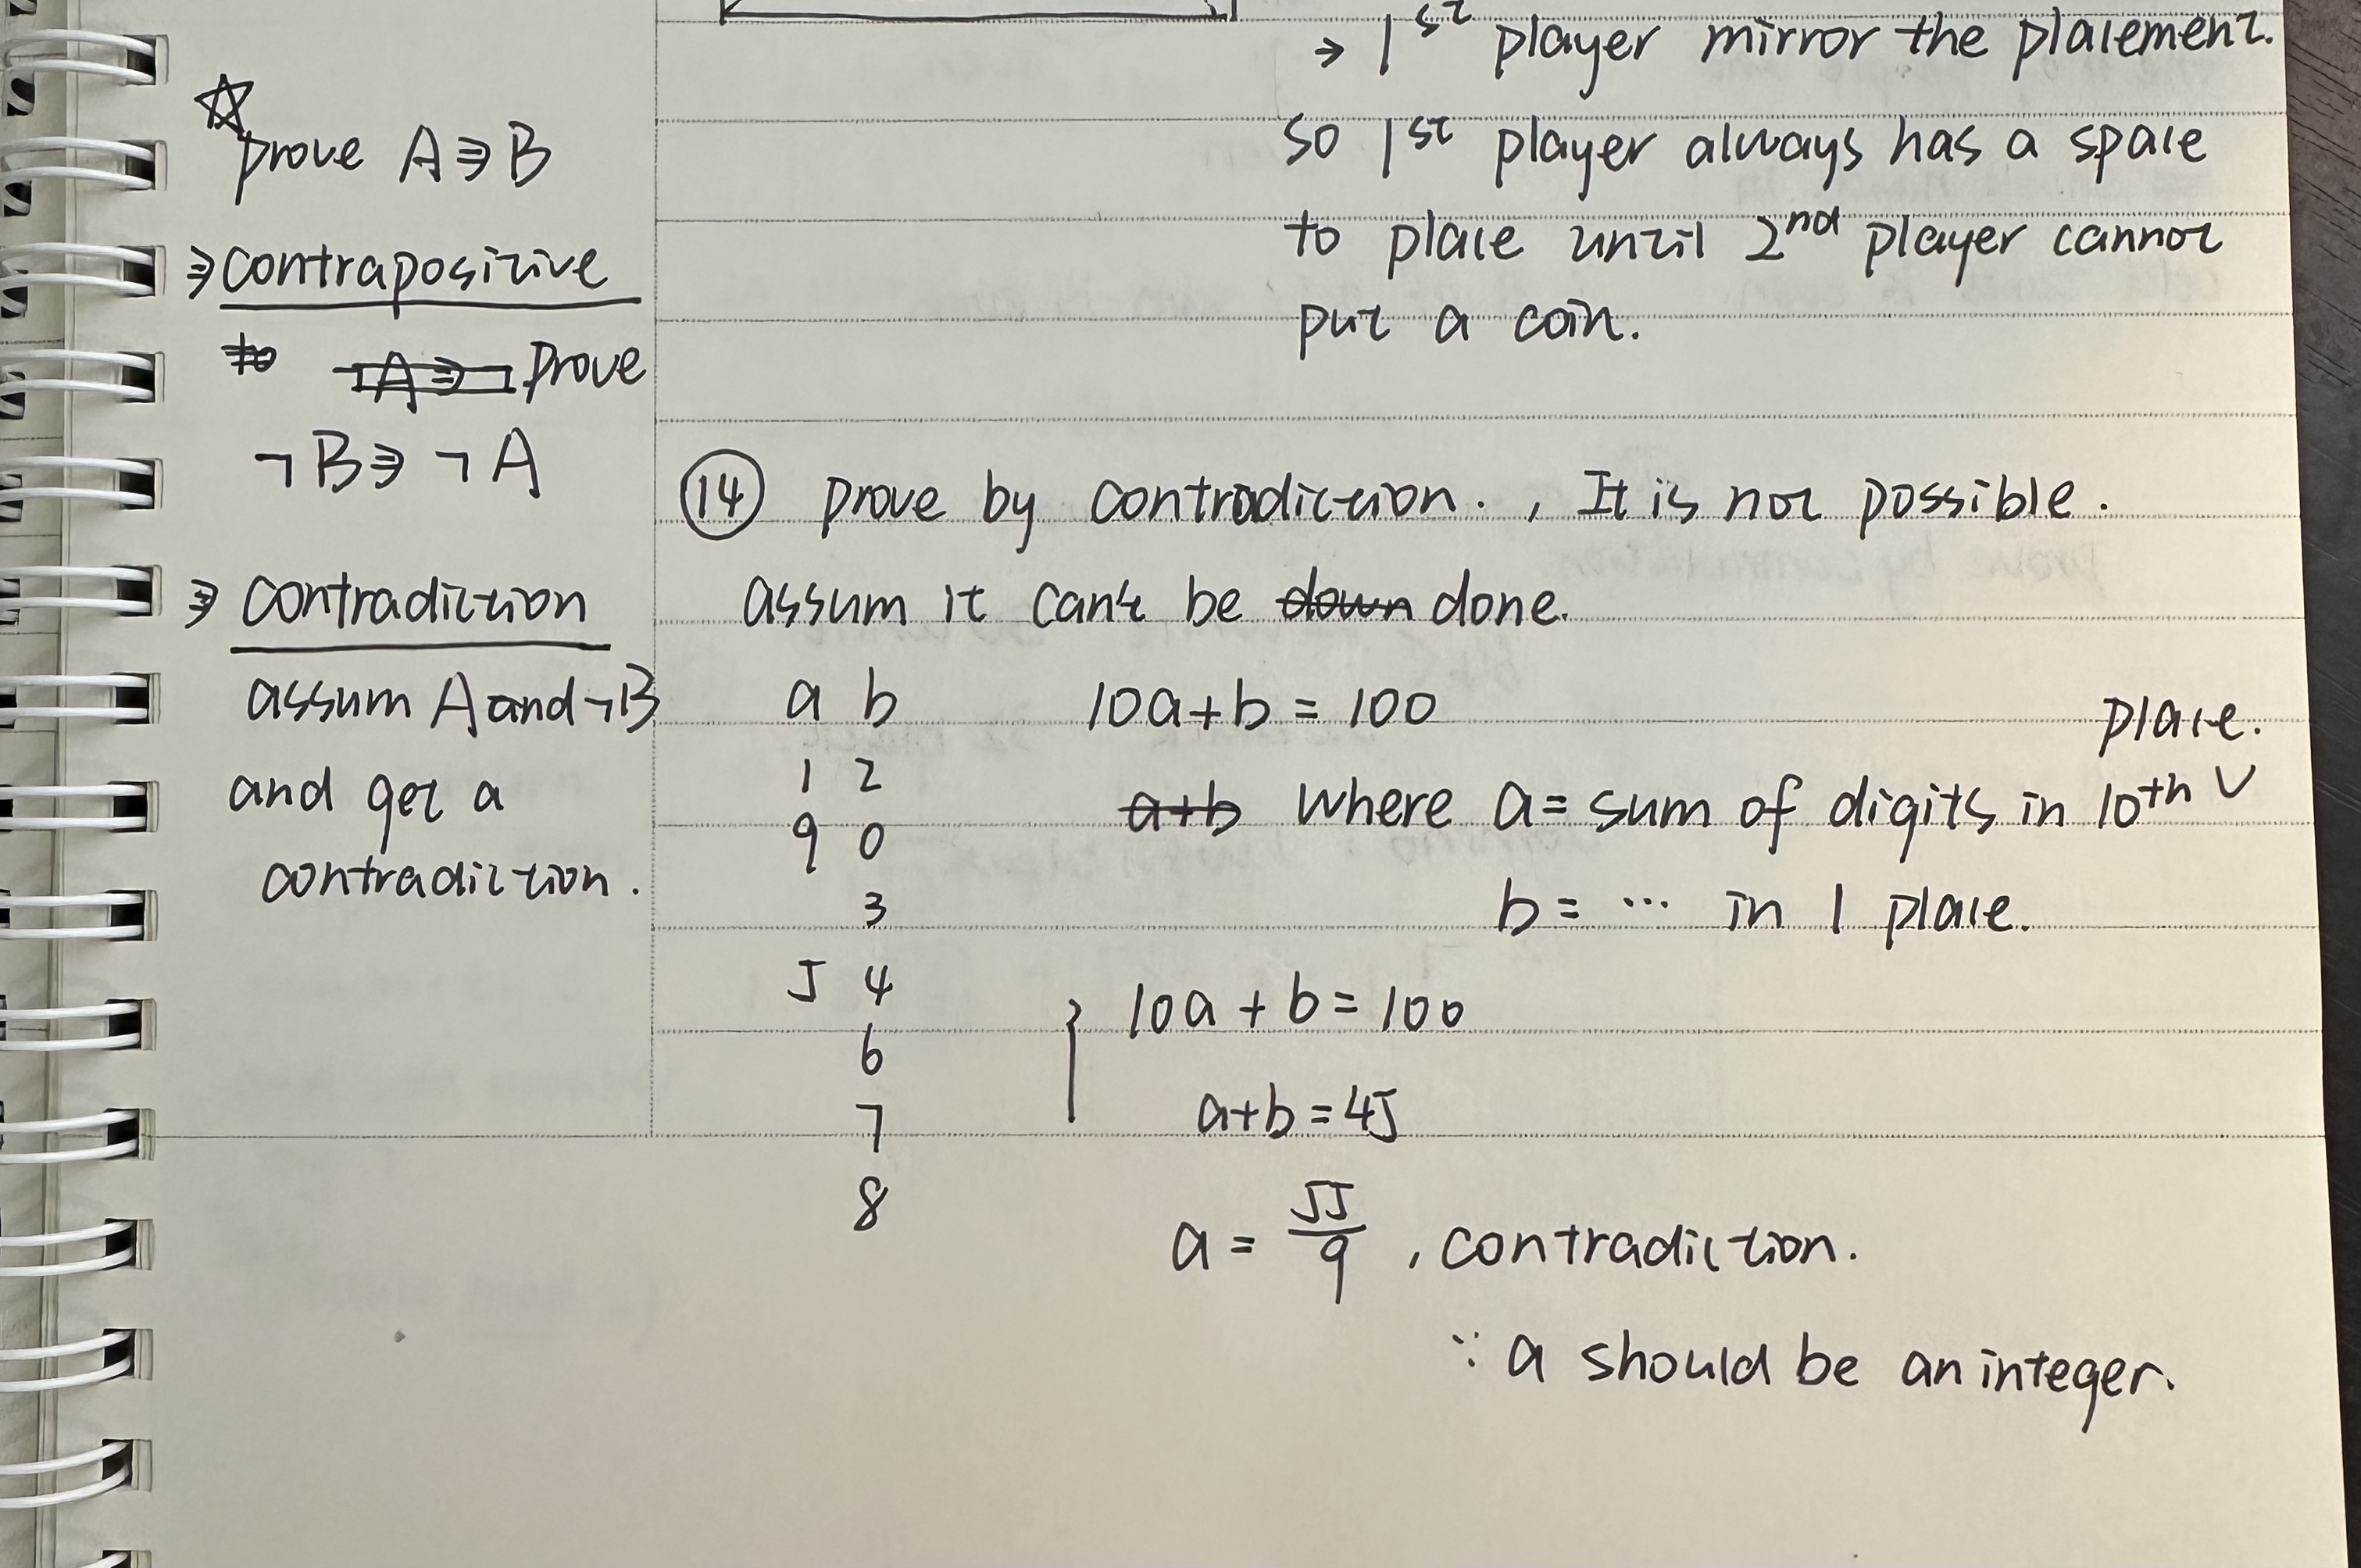 → 1st player mirror the placement.
so 1st player always has a space
to place until 2nd player cannot
put a coin.
☆
prove A ⇒ B
⇒ contrapositive
to A ⇒ prove
¬B ⇒ ¬A
⇒ contradiction
assum A and ¬B
and get a
contradiction.
⑭ prove by contradiction. , It is not possible.
assum it can't be down done.
a b 10a+b = 100
place.
1 2
a+b where a = sum of digits in 10th ∨
9 0
3
b = ... in 1 place.
5 4
10a + b = 100
6
7
a+b = 45
8
a = 55/9 , contradiction.
∵ a should be an integer.